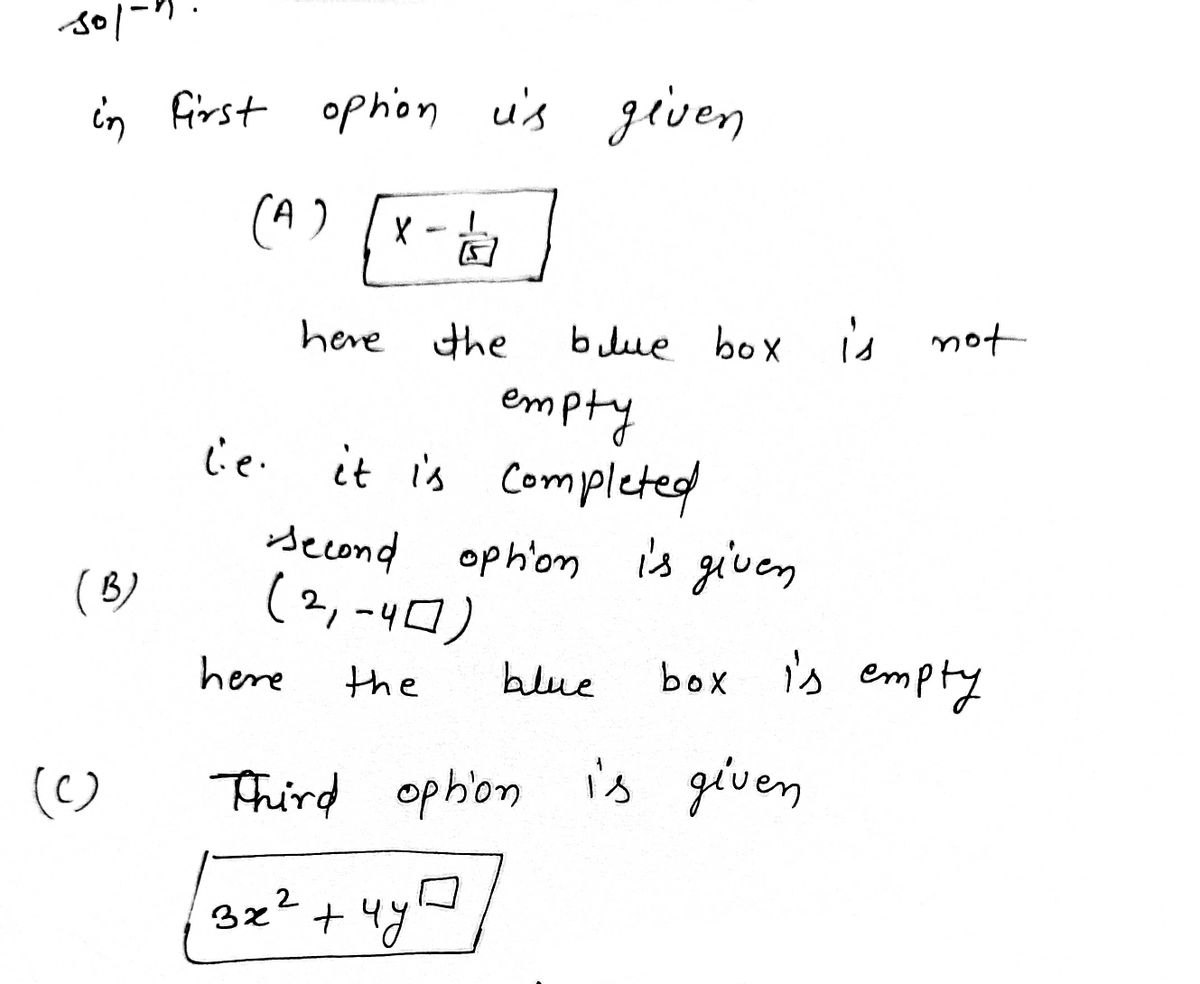 sol-n.
in first option is given
(A) x - 1/5
here the blue box is not
empty
i.e. it is completed
second option is given
(B) (2, -4□)
here the blue box is empty
(C) Third option is given
3x² + 4y□